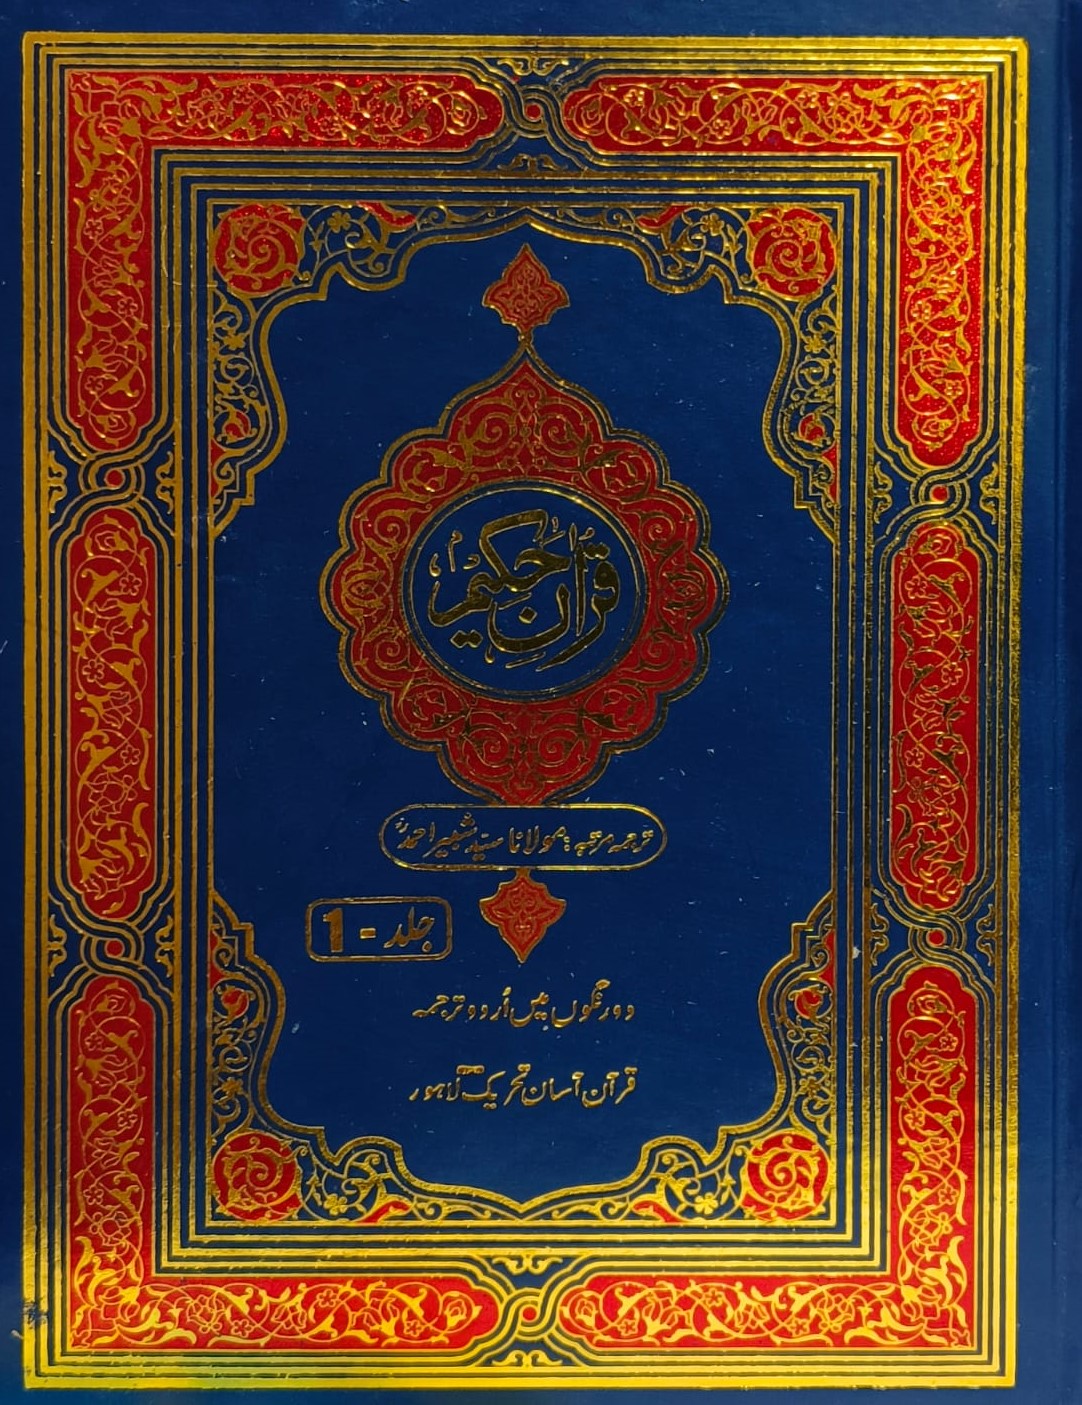 قرآن حکیم
ترجمہ مرتبہ: مولانا سید شبیر احمدؒ
جلد - 1
دو رنگوں میں اُردو ترجمہ
قرآن آسان تحریک لاہور